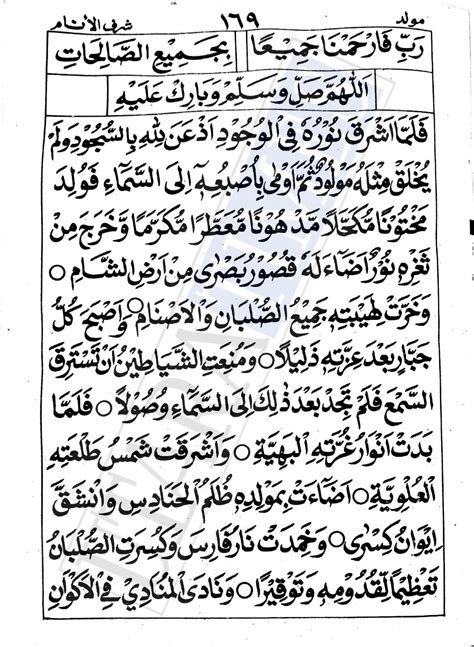 مولد ١٦٩ شرف الأنام
رَبِّ فَارْحَمْنَا جَمِيْعًا بِجَمِيْعِ الصَّالِحَاتِ
اَللّٰهُمَّ صَلِّ وَسَلِّمْ وَبَارِكْ عَلَيْهِ
فَلَمَّا اَشْرَقَ نُوْرُهٗ فِى الْوُجُوْدِ اَذْعَنَ لِلّٰهِ بِالسُّجُوْدِ وَلَمْ
يُخْلَقْ مِثْلَهٗ مَوْلُوْدٌ ثُمَّ اَوْمٰى بِاُصْبُعِهٖ اِلَى السَّمَآءِ فَوُلِدَ
مَخْتُوْنًا مُكَحَّلًا مَدْهُوْنًا مُعَطَّرًا مُكَرَّمًا وَخَرَجَ مِنْ
ثَغْرِهٖ نُوْرٌ اَضَآءَ لَهٗ قُصُوْرُ بُصْرٰى مِنْ اَرْضِ الشَّامِ ○
وَخَرَّتْ لِهَيْبَتِهٖ جَمِيْعُ الصُّلْبَانِ وَالْاَصْنَامِ ○ وَاَصْبَحَ كُلُّ
جَبَّارٍ بَعْدَ عِزَّتِهٖ ذَلِيْلًا ○ وَمُنِعَتِ الشَّيَاطِيْنُ اَنْ تَسْتَرِقَ
السَّمْعَ فَلَمْ تَجِدْ بَعْدَ ذٰلِكَ اِلَى السَّمَآءِ وُصُوْلًا ○ فَلَمَّا
بَدَتْ اَنْوَارُ غُرَّتِهِ الْبَهِيَّةِ ○ وَاَشْرَقَتْ شَمْسُ طَلْعَتِهِ
الْعُلْوِيَّةِ ○ اَضَآءَتْ بِمَوْلِدِهٖ ظُلَمُ الْحَنَادِسِ وَانْشَقَّ
اِيْوَانُ كِسْرٰى ○ وَخَمَدَتْ نَارُ فَارِسَ وَكُسِرَتِ الصُّلْبَانُ
تَعْظِيْمًا لِقُدُوْمِهٖ وَتَوْقِيْرًا ○ وَنَادَى الْمُنَادِيْ فِى الْاَكْوَانِ